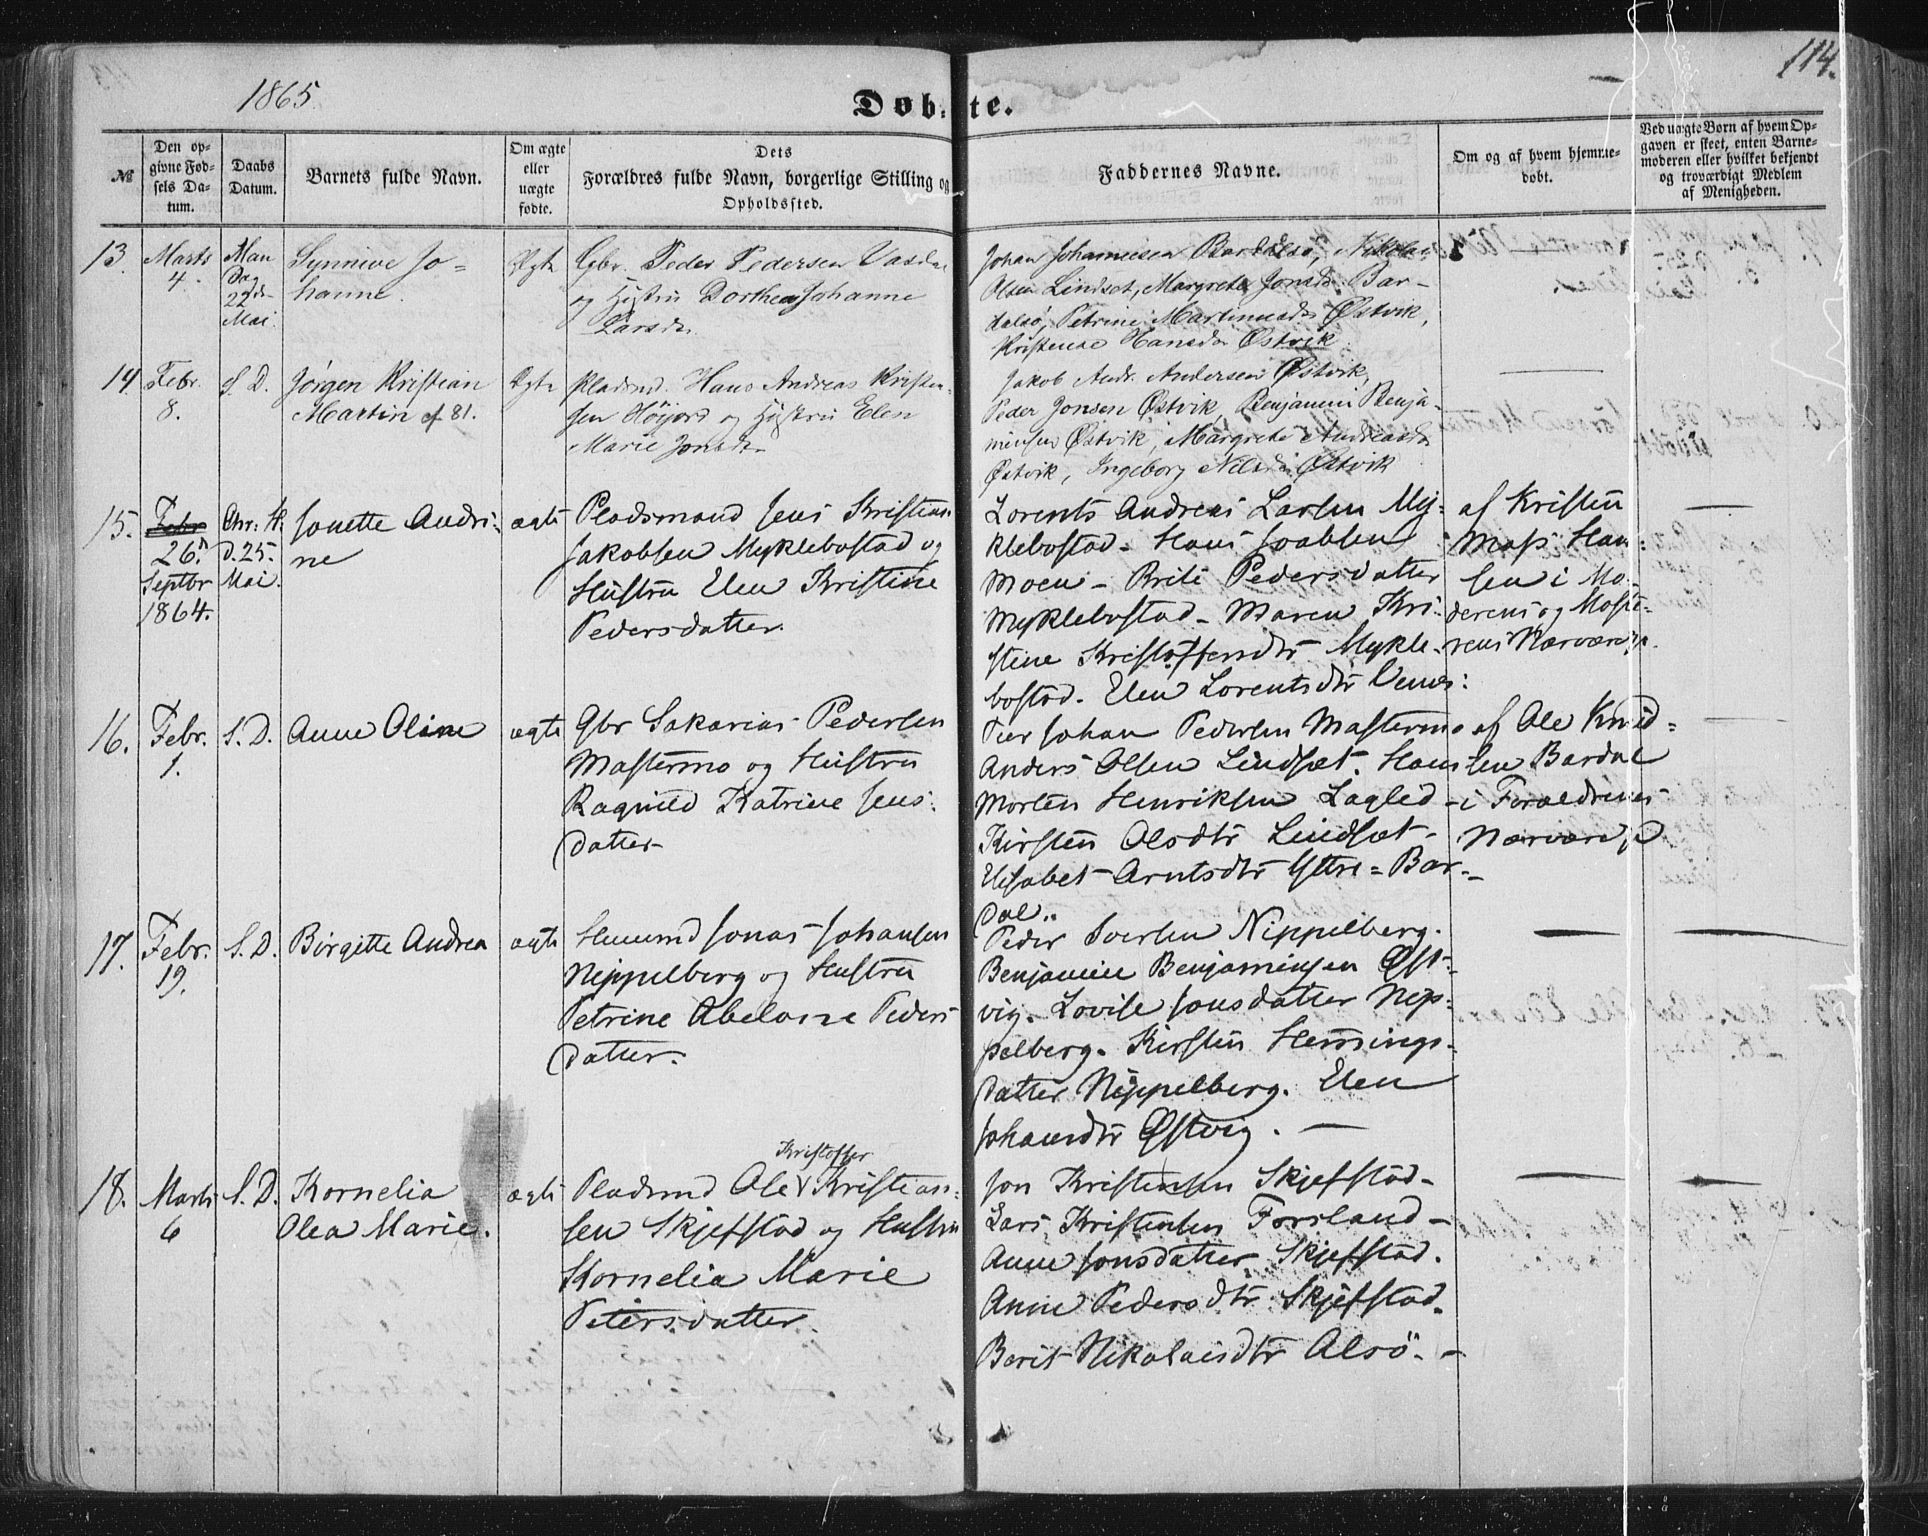 1865
114.
Døb-te.
№
Den op-
givne Fød-
sels Da-
tum.
Daabs
Datum.
Barnets fulde Navn.
Om ægte
eller
uægte
fødte.
Dets
Forældres fulde Navn, borgerlige Stilling og
Opholdssted.
Faddernes Navne.
Om og af hvem hjemme-
døbt.
Ved uægte Børn af hvem Op-
gaven er skeet, enten Barne-
moderen eller hvilket bekjendt
og troværdigt Medlem
af Menigheden.
13.
Marts
4.
Man
Dag
22de
Mai.
Synnive Jo-
hanne.
Ægte
Gbr. Peder Pedersen
og Hustru Dorthea Johanne
Larsdr.
Johan Johannesen Bardalsø, Nikolai
Olsen Lindset, Margrete Jonsd. Bar-
dalsø, Petrine Martinusdr Østvik,
Hansdr Østvik
14.
Febr.
8.
S. D.
Jørgen Kristian
Martin af 81.
Ægte
Pladsmd. Hans Andreas Kristen-
sen Höijord og Hustru Elen
Marie Jonsdr.
Jakob Andr. Andersen Østvik,
Peder Jonsen Østvik, Benjamin Benja-
minsen Østvik, Margrete Andreasdr
Østvik, Ingeborg Nilsdr Østvik
15.
Febr
26.
Septbr
1864.
Chr. H.
d. 25.
Mai.
Jonette Andri-
ne
ægte
Pladsmand Jens Kristian
Jakobsen Myklebostad og
Hustru Elen Kristine
Pedersdatter.
Lorents Andreas Larsen My-
klebostad - Hans Joabsen
Moen - Brite Pedersdatter
Myklebostad - Maren Kri-
stine Kristoffersdtr Mykle-
bostad. Elen Lorentsdtr Vennes:
af Kristen
Mass Han-
sen i Mo-
derens og Moste-
rens Nærværelse.
16.
Febr.
1.
S. D.
Anne Oline
ægte
Gbr Sakarias Pedersen
Mastermo og Hustru
Ragnild Katrine Jens-
datter-
Peer Johan Pedersen Mastermo
Anders Olsen Lindsæt.
Morten Henriksen Laglid -
Kirsten Olsdtr Lindsæt -
Elisabet Arntsdtr Yttre-Bar-
dal.
af Ole Knud-
sen Bardal
i Forældrenes
Nærværelse
17.
Febr.
19.
S. D.
Birgitte Andrea
ægte
Huusmd Jonas Johansen
Nippelberg og Hustru
Petrine Abelone Peders-
datter.
Peder Iversen Nippelberg.
Benjamin Benjaminsen Øst-
vig. Lovise Jonsdatter Nip-
pelberg. Kirsten Hemmings-
datter Nippelberg. Elen
Johansdtr Østvig.
18.
Marts
6
S. D.
Kornelia
Olea Marie.
ægte
Kristoffer
Pladsmd Ole Kristian-
sen Skjefstad og Hustru
Kornelia Marie
Petersdatter.
Jon Kristensen Skjefstad -
Lars Kristensen Forsland -
Anne Jonsdatter Skjefstad.
Anne Pedersdtr Skjefstad.
Berit Nikolaisdtr Alsö.